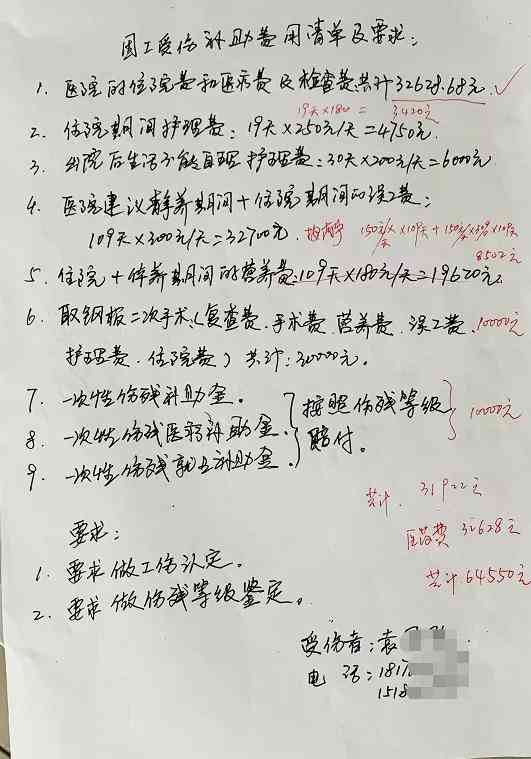 因工受伤补助费用清单及要求：
1. 医院的住院费和医疗费及检查费共计32628.68元 ✓
19天×180 = 3420元
2. 住院期间护理费：19天×250元/天=4750元.
3. 出院后生活不能自理护理费：30天×200元/天=6000元
4. 医院建议静养期间+住院期间的误工费：
109天×300元/天=32700元. 150元/天×109天+150元/天
8502元
5. 住院+停养期间的营养费：109天×180元/天=19620元.
6. 取钢板二次手术（复查费.手术费.营养费.误工费. 10000元
护理费.住院费）共计：30000元.
7. 一次性伤残补助金.
8. 一次性伤残医疗补助金. 按照伤残等级 10000元
9. 一次性伤残就业补助金. 赔付.
共计. 31922元
医药费 32628元
共计64550元
要求：
1. 要求做工伤认定.
2. 要求做伤残等级鉴定.
受伤者：袁
电 话：1817
1518